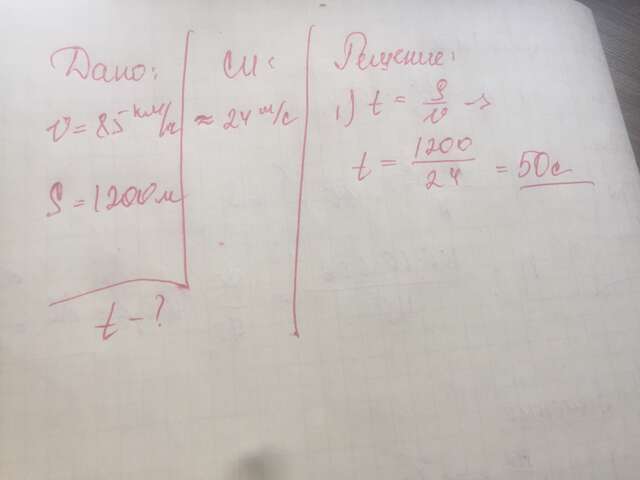 Дано:
υ = 85 км/ч
S = 1200 м
t - ?
СИ:
≈ 24 м/с
Решение:
1) t = S/υ →
t = 1200/24 = 50 с